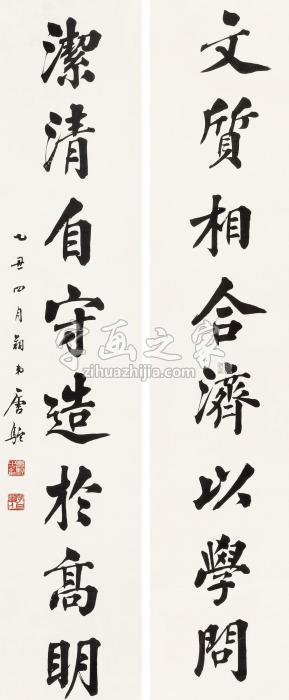 文質相合濟以學問
潔清自守造於高明
乙丑四月
唐駝
字画之家
zihuazhijia.com